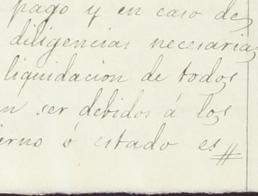 pago y en caso de
diligencias necesarias
liquidacion de todos
n ser debidos á los
ierno ó estado es